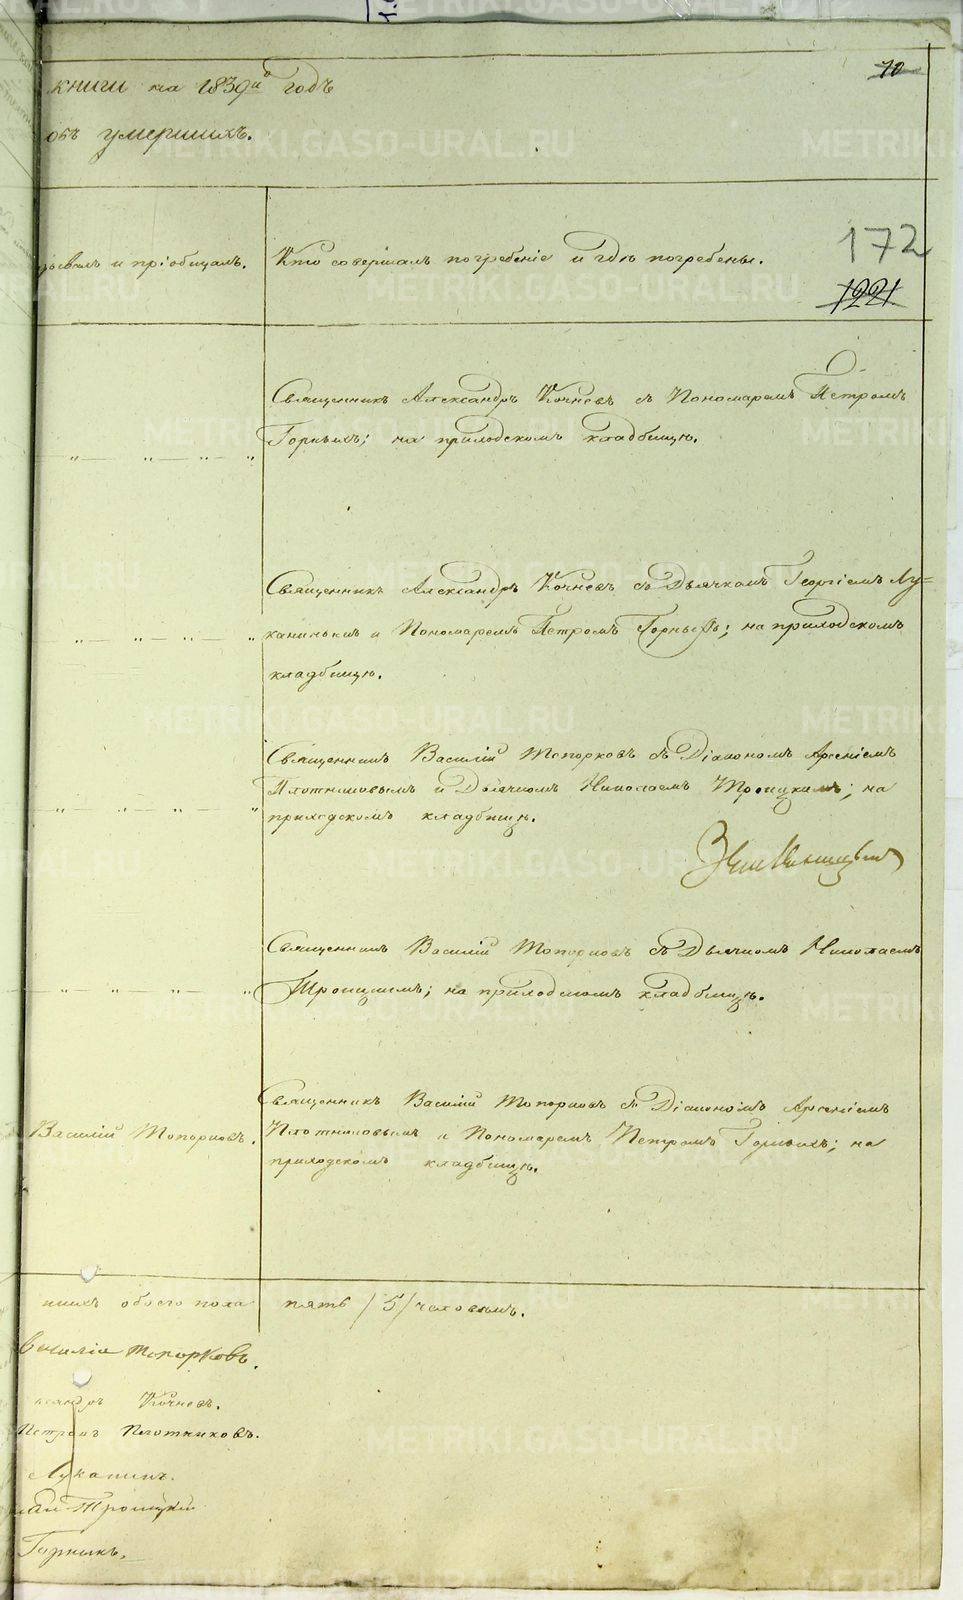 книги на 1839й годъ
70
объ умершихъ.
и пріобщалъ.
Кто совершалъ погребеніе и гдѣ погребены.
172
1221
Священникъ Александръ Кочневъ съ Пономаремъ Петромъ
Горныхъ; на приходскомъ кладбищѣ.
Священникъ Александръ Кочневъ съ Дьячкомъ Георгіемъ Лу=
канинымъ и Пономаремъ Петромъ Горныхъ; на приходскомъ
кладбищѣ.
Священникъ Василій Топорковъ съ Діакономъ Арсеніемъ
Плотниковымъ и Дьячкомъ Николаемъ Троицкимъ; на
приходскомъ кладбищѣ.
Священникъ Василій Топорковъ съ Дьячкомъ Николаемъ
Троицкимъ; на приходскомъ кладбищѣ.
Священникъ Василій Топорковъ съ Діакономъ Арсеніемъ
Василій Топорковъ.
Плотниковымъ и Пономаремъ Петромъ Горныхъ; на
приходскомъ кладбищѣ.
шихъ обоего пола пять /5/ человѣкъ.
Василій Топорковъ.
ксандръ Кочневъ.
Плотниковъ.
Луканинъ.
лай Троицкій
Горныхъ.
METRIKI.GASO-URAL.RU